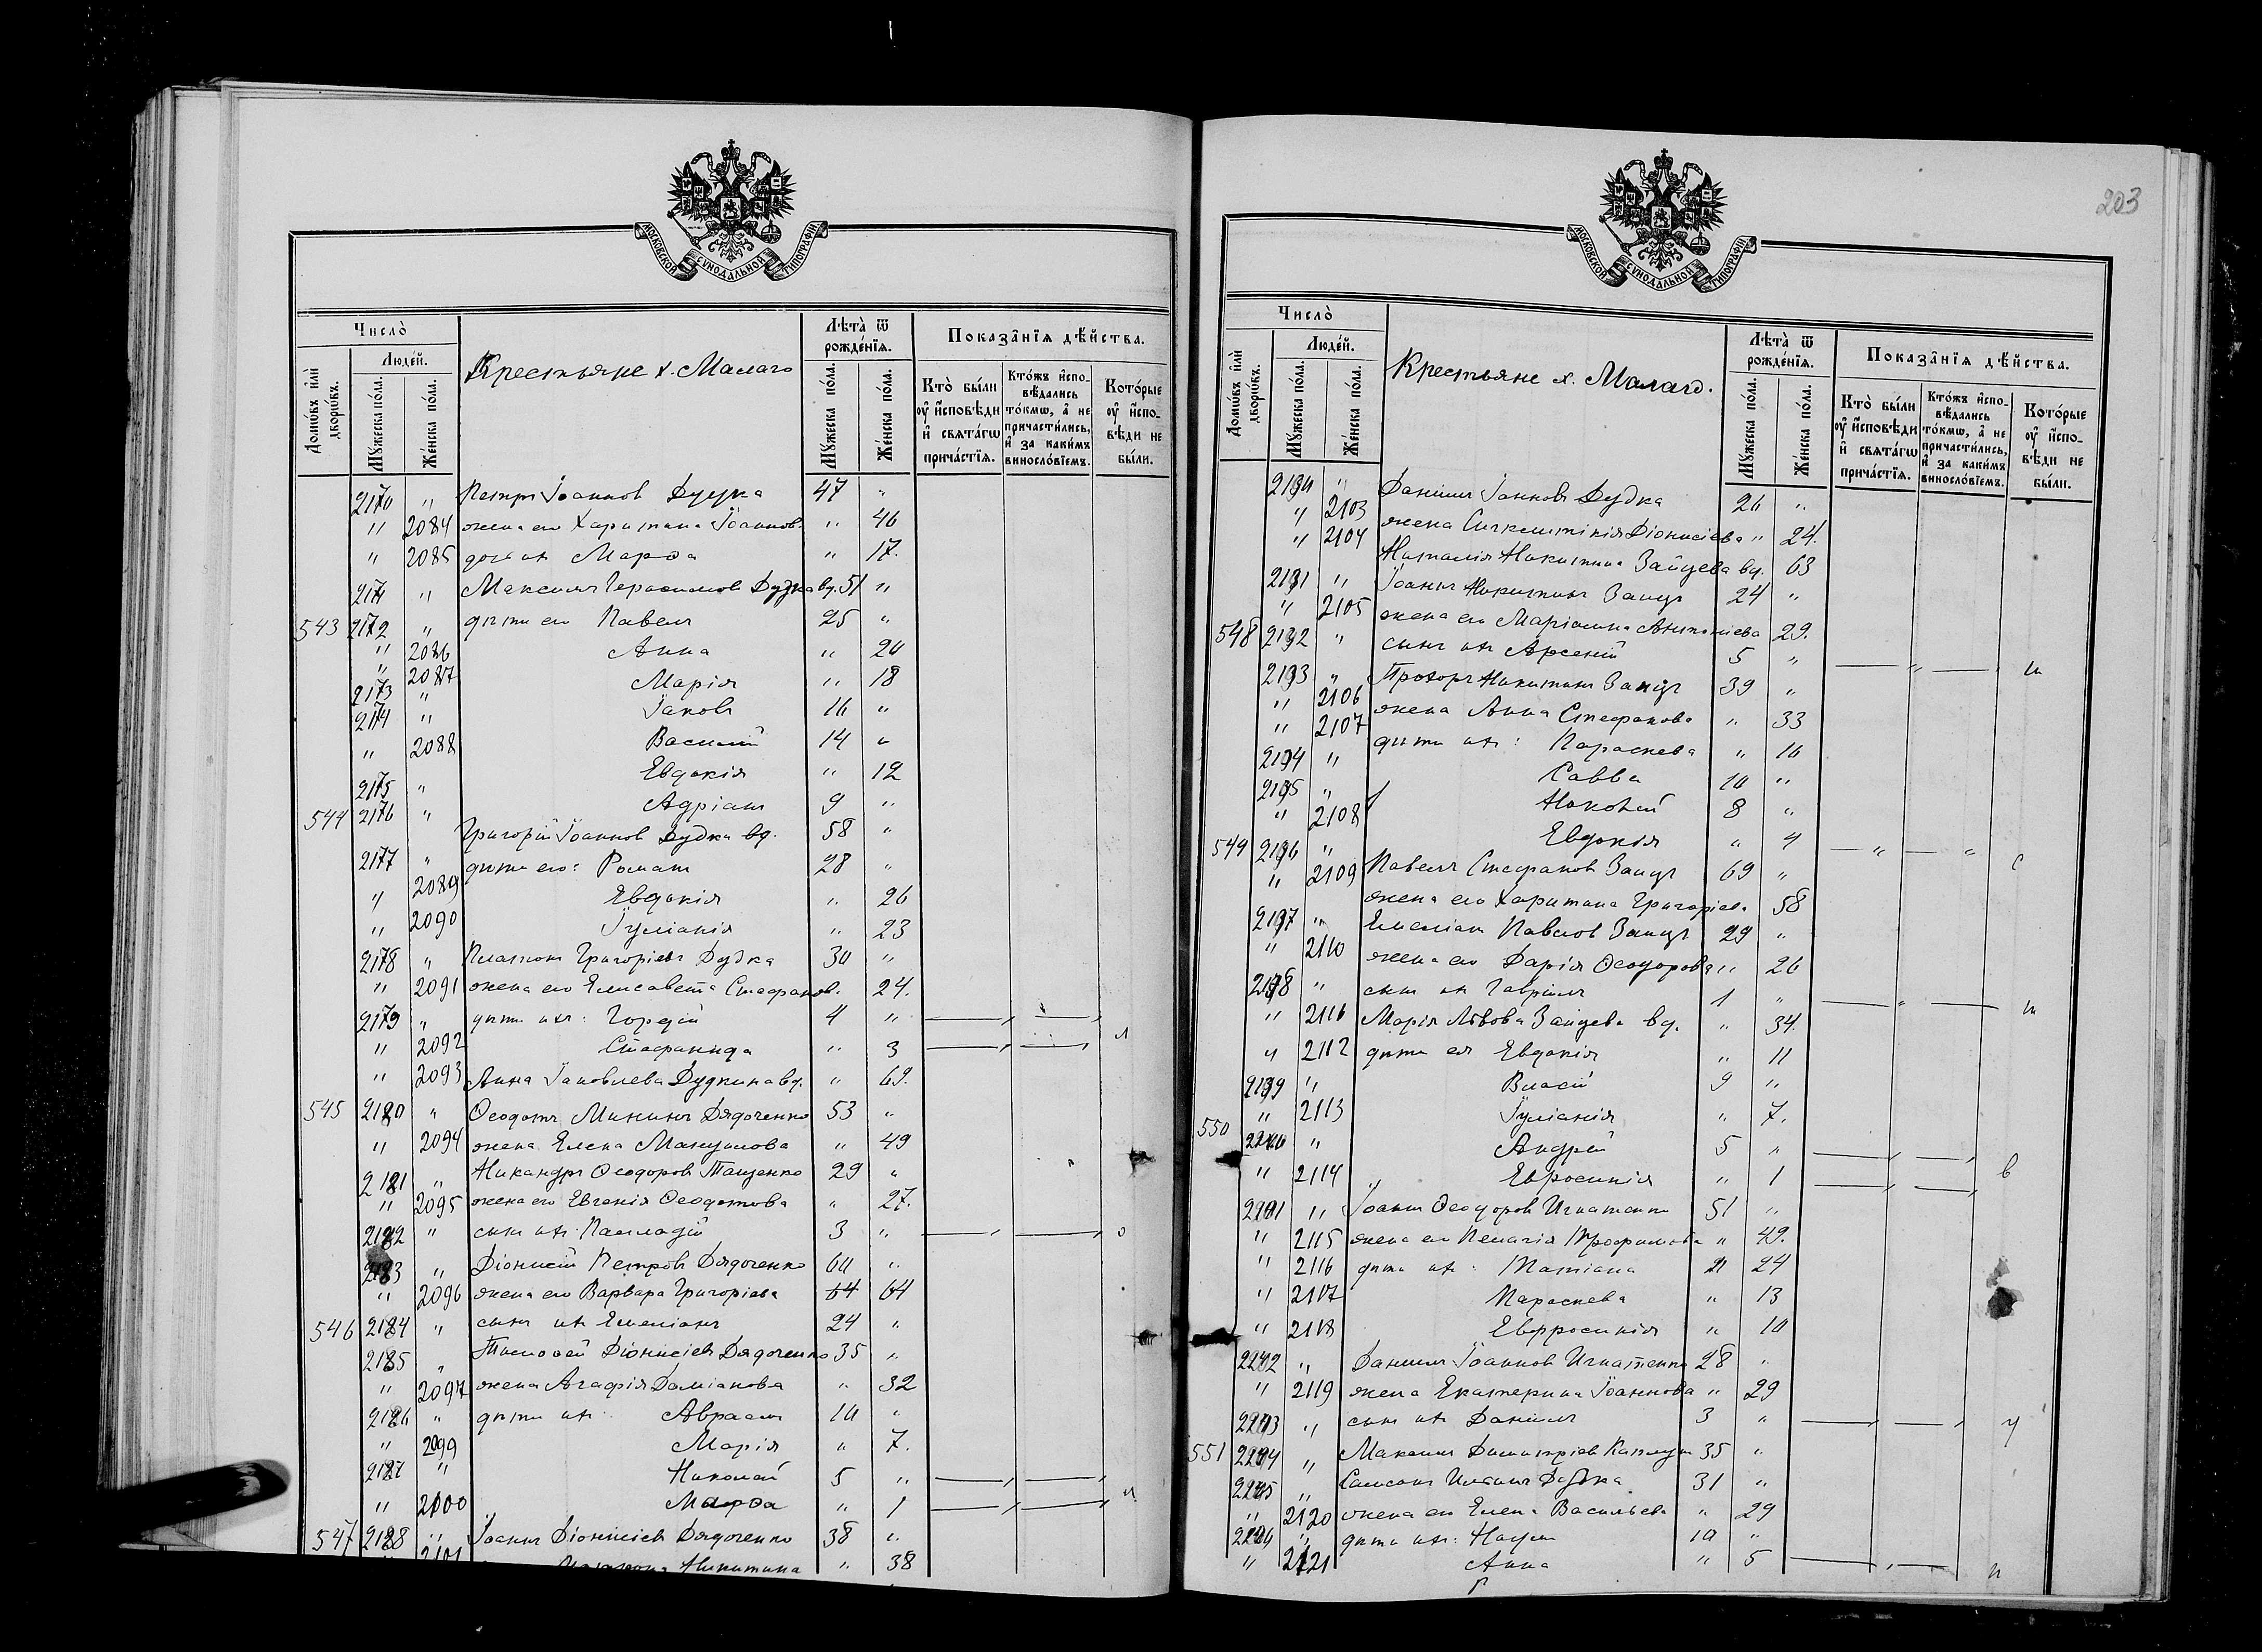 203
МОСКОВСКОЙ СУНОДАЛЬНОЙ ТИПОГРАФІИ
Число̀
Люде́й.
Домѡ́въ и҆лѝ дворѡ́въ.
Мꙋ́жеска по́ла.
Же́нска по́ла.
Крестьяне х. Малаго
Лѣта̀ ѿ рожде́нїѧ.
Мꙋ́жеска по́ла.
Же́нска по́ла.
Показа̑нїѧ дѣ́йства.
Кто̀ бы́ли оу҆ и҆сповѣди и҆ свѧта́гѡ прича́стїѧ.
Кто́жъ и҆спо- вѣ́дались то́кмѡ, а҆ не причасти́лись, и҆ за каки́мъ винослові́емъ.
Кото́рые оу҆ и҆спо- вѣди не бы́ли.
2170 " Петръ Іоанновъ Дудка 47 "
" 2084 жена его Харитина Іоаннов. " 46
" 2085 дочь ихъ Марѳа " 17.
2171 " Максимъ Герасимовъ Дудка вд. 51 "
543 2172 " дѣти его Павелъ 25 "
" 2086 Анна " 20
" 2087 Марія " 18
2173 " Іаковъ 16 "
2174 " Василій 14 "
" 2088 Евдокія " 12
2175 " Адріанъ 9 "
544 2176 " Григорій Іоанновъ Дудка вд. 58 "
2177 " дѣти его: Романъ 28 "
" 2089 Евдокія " 26
" 2090 Іуліанія " 23
2178 " Платонъ Григорьевъ Дудка 30 "
" 2091 жена его Елисавета Стефанов. " 24.
2179 " дѣти ихъ: Гордій 4 "
" 2092 Стефанида " 3
" 2093 Анна Іаковлева Дудкина вд. " 69.
545 2180 " Ѳеодотъ Мининъ Дядоченко 53 "
" 2094 жена Елена Мануилова " 49
2181 " Никандръ Ѳеодоровъ Тащенко 29 "
" 2095 жена его Евгенія Ѳеодотова " 27.
2182 " сынъ ихъ Палладій 3 "
2183 " Діонисій Петровъ Дядоченко 60 "
" 2096 жена его Варвара Григоріева 64 64
546 2184 " сынъ ихъ Емеліанъ 24 "
2185 " Тимоѳей Діонисіевъ Дядоченко 35 "
" 2097 жена Агафія Даміанова " 32
2186 " дѣти ихъ: Авраамъ 10 "
" 2099 Марія " 7.
2187 " Николай 5 "
" 2100 Марѳа " 1
547 2188 " Іоаннъ Діонисіевъ Дядоченко 38 "
" 2101 Никитина " 38
МОСКОВСКОЙ СУНОДАЛЬНОЙ ТИПОГРАФІИ
Число̀
Люде́й.
Домѡ́въ и҆лѝ дворѡ́въ.
Мꙋ́жеска по́ла.
Же́нска по́ла.
Крестьяне х. Малаго.
Лѣта̀ ѿ рожде́нїѧ.
Мꙋ́жеска по́ла.
Же́нска по́ла.
Показа̑нїѧ дѣ́йства.
Кто̀ бы́ли оу҆ и҆сповѣди и҆ свѧта́гѡ прича́стїѧ.
Кто́жъ и҆спо- вѣ́дались то́кмѡ, а҆ не причасти́лись, и҆ за каки́мъ винослові́емъ.
Кото́рые оу҆ и҆спо- вѣди не бы́ли.
2190 " Даніилъ Іоанновъ Дудка 26 "
" 2103 жена Синклитикія Діонисіева " 24.
" 2104 Наталія Никитина Зайцева вд. 63
2191 " Іоаннъ Никитинъ Заицъ 24 "
" 2105 жена его Маріамна Антоніева 29.
548 2192 " сынъ ихъ Арсеній 5 "
2193 " Прохоръ Никитинъ Заицъ 39 "
" 2106 жена Анна Стефанова " 33
" 2107 дѣти ихъ: Параскева " 16
2194 " Савва 10 "
2195 " Николай 8 "
" 2108 Евдокія " 4
549 2196 " Павелъ Стефановъ Заицъ 69 "
" 2109 жена его Харитина Григоріева 58
2197 " Емеліанъ Павловъ Заицъ 29 "
" 2110 жена его Дарія Ѳеодорова " 26
2198 " сынъ ихъ Гавріилъ 1 "
" 2111 Марія Львова Зайцева вд. " 34.
" 2112 дѣти ея Евдокія " 11
2199 " Власій 9 "
" 2113 Іуліанія " 7.
550 2200 " Андрей 5 "
" 2114 Евфросинія " 1
2201 " Іоаннъ Ѳеодоровъ Игнатенко 51 "
" 2115 жена его Пелагія Трофимова " 49.
" 2116 дѣти ихъ: Татіана " 24
" 2117 Параскева " 13
" 2118 Евфросинія " 10
2202 " Даніилъ Іоанновъ Игнатенко 28 "
" 2119 жена Екатерина Іоаннова " 29
2203 " сынъ ихъ Даніилъ 3 "
551 2204 " Максимъ Димитріевъ Каплунъ 35 "
2205 " Самсонъ Дудка 31 "
" 2120 жена его Елена Васильева " 29
2206 " дѣти ихъ: Наумъ 10 "
" 2121 Анна " 5